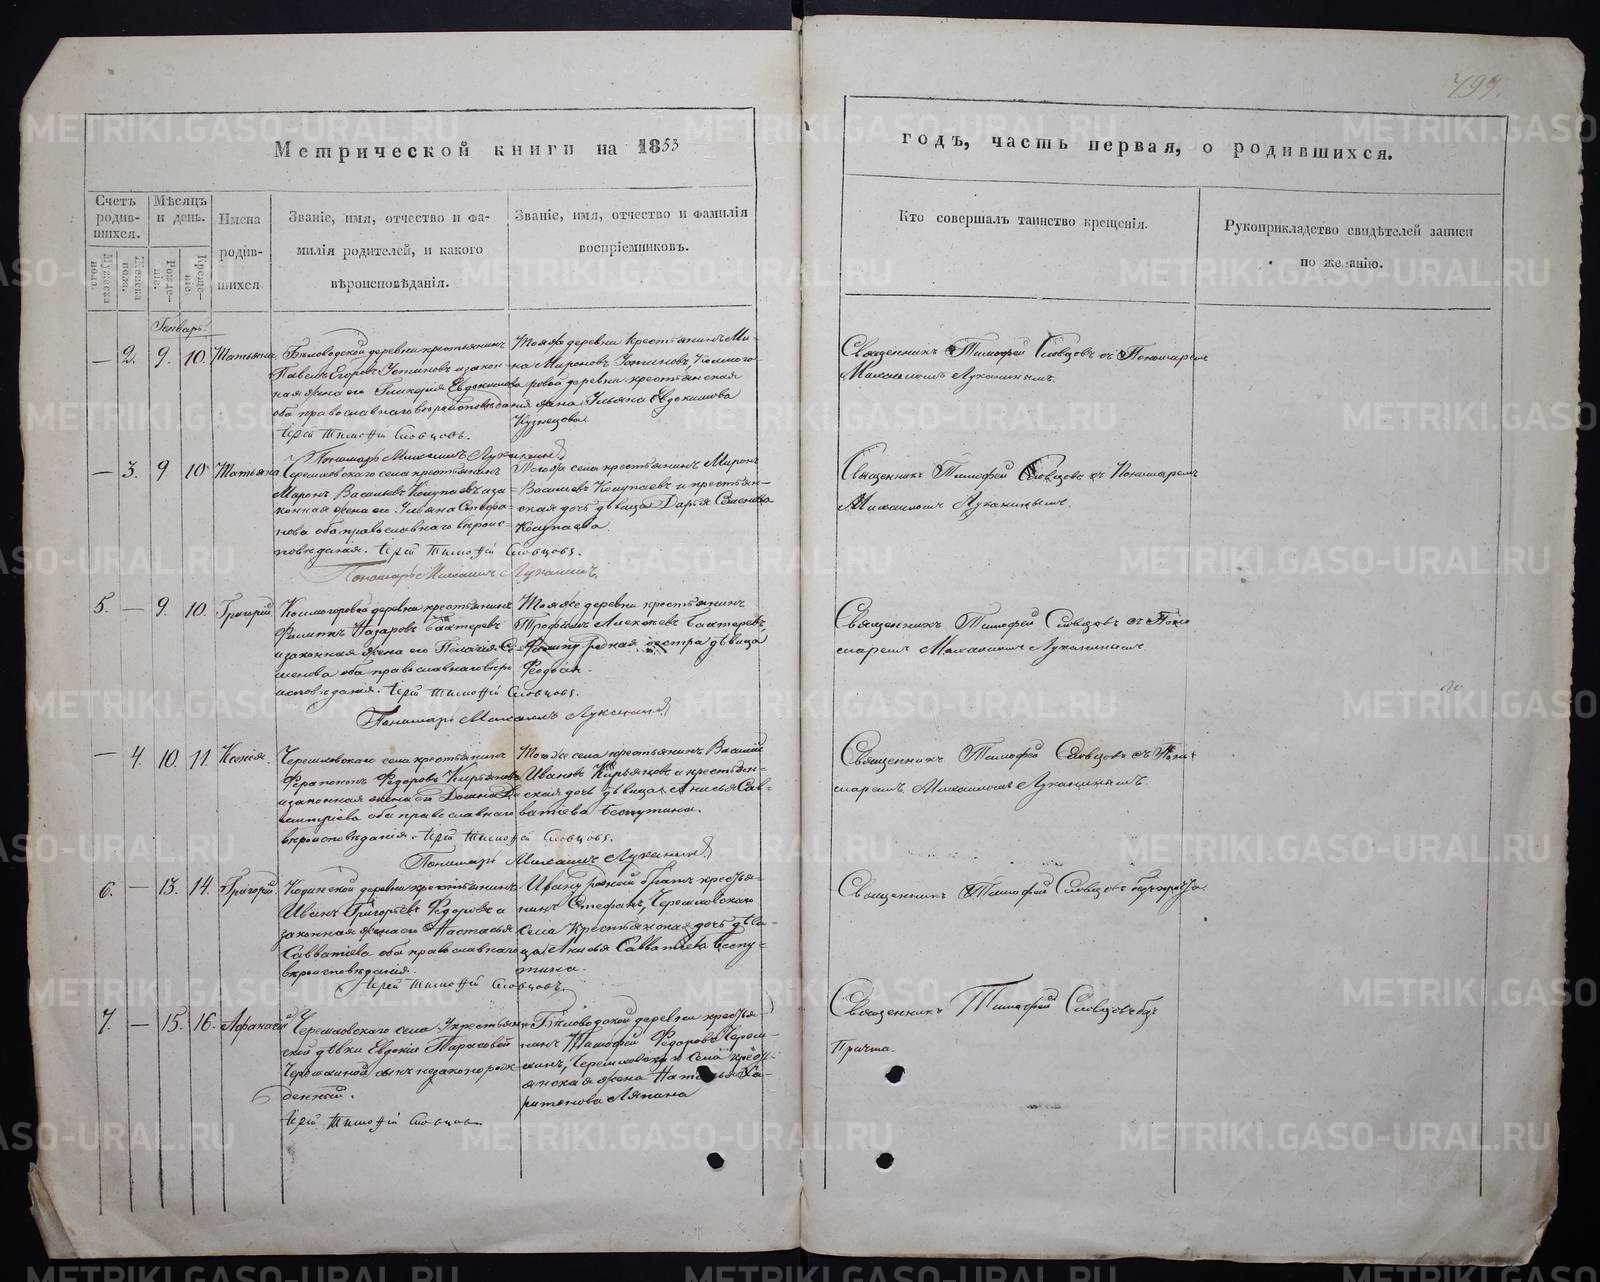 799.
Метрической книги на 1853
годъ, часть первая, о родившихся.
Счетъ родив-шихся.
Мужеска пола.
Женска пола.
Мѣсяцъ и день.
Рожде-ніе.
Креще-ніе.
Имена родив-шихся
Званіе, имя, отчество и фа-
милія родителей, и какого
вѣроисповѣданія.
Званіе, имя, отчество и фамилія
воспріемниковъ.
Кто совершалъ таинство крещенія.
Рукоприкладство свидѣтелей записи
по желанію.
Генварь.
— 2. 9. 10. Татьяна.
Бѣловодской деревни крестьянинъ
Павелъ Егоровъ Устиновъ и закон-
ная жена его Гликерія Евдокимова
оба православнаго вѣроисповѣданія
Іерей Тимофей Словцовъ.
Пономарь Михаилъ Луканинъ
Тояже деревни крестьянинъ Ми-
на Мироновъ Устиновъ,
ровой деревни крестьянская
жена Ульяна Евдокимова
Кузнецова.
Священникъ Тимофей Словцовъ съ Пономаремъ
Михаиломъ Луканинымъ.
— 3. 9. 10 Татьяна
Черемховскаго села крестьянинъ
Миронъ Васильевъ и за-
конная жена его Ульяна
нова оба православнаго вѣроис-
повѣданія. Іерей Тимофей Словцовъ.
Пономарь Михаилъ Луканинъ
Тогожъ села крестьянинъ Миронъ
Васильевъ и крестьян-
ская дочь дѣвица Дарья Семенова
Священникъ Тимофей Словцовъ съ Пономаремъ
Михаиломъ Луканинымъ.
5. — 9. 10. Григорій
деревни крестьянинъ
Филиппъ Назаровъ Бахтеревъ
и законная жена его Пелагія Се-
менова оба православнаго вѣро
исповѣданія. Іерей Тимофей Словцовъ.
Пономарь Михаилъ Луканинъ
Тояже деревни крестьянинъ
Трофимъ Алексѣевъ Бахтеревъ,
родная сестра дѣвица
Священникъ Тимофей Словцовъ съ Поно
маремъ Михаиломъ Луканинымъ
— 4. 10. 11. Ксенія.
Черемховскаго села крестьянинъ
Ферапонтъ Федоровъ Кирьяновъ
и законная жена его Домна Ди-
митріева оба православнаго
вѣроисповѣданія. Іерей Тимофей Словцовъ.
Пономарь Михаилъ Луканинъ
Тогоже села крестьянинъ Василій
Ивановъ Кирьяновъ и крестьян-
ская дочь дѣвица Анисья Сав-
ватіева Беспутина.
Священникъ Тимофей Словцовъ съ Поно
маремъ Михаиломъ Луканинымъ
6. — 13. 14. Григорій.
Кодинской деревни крестьянинъ
Иванъ Григорьевъ Федоровъ и
законная жена его Настасья
Савватіева оба православнаго
вѣроисповѣданія.
Іерей Тимофей Словцовъ.
Ивану родной братъ кресть-
нинъ Стефанъ, Черемховскаго
села Крестьянская дочь дѣви-
ца Анисья Савватіева Беспу-
тина.
Священникъ Тимофей Словцовъ безъ причта.
7. — 15. 16. Афанасій
Черемховскаго села у крестьян-
ской дѣвки Евдокіи Тарасовой
Черемкиной сынъ незаконорож-
денный.
Іерей Тимофей Словцовъ.
Бѣловодской деревни кресть-
нинъ Тимофей Федоровъ Черем-
кинъ, Черемховскаго села кресть-
янская жена Наталья Ха-
ритонова Ляпина
Священникъ Тимофей Словцовъ безъ
Причта.
METRIKI.GASO-URAL.RU